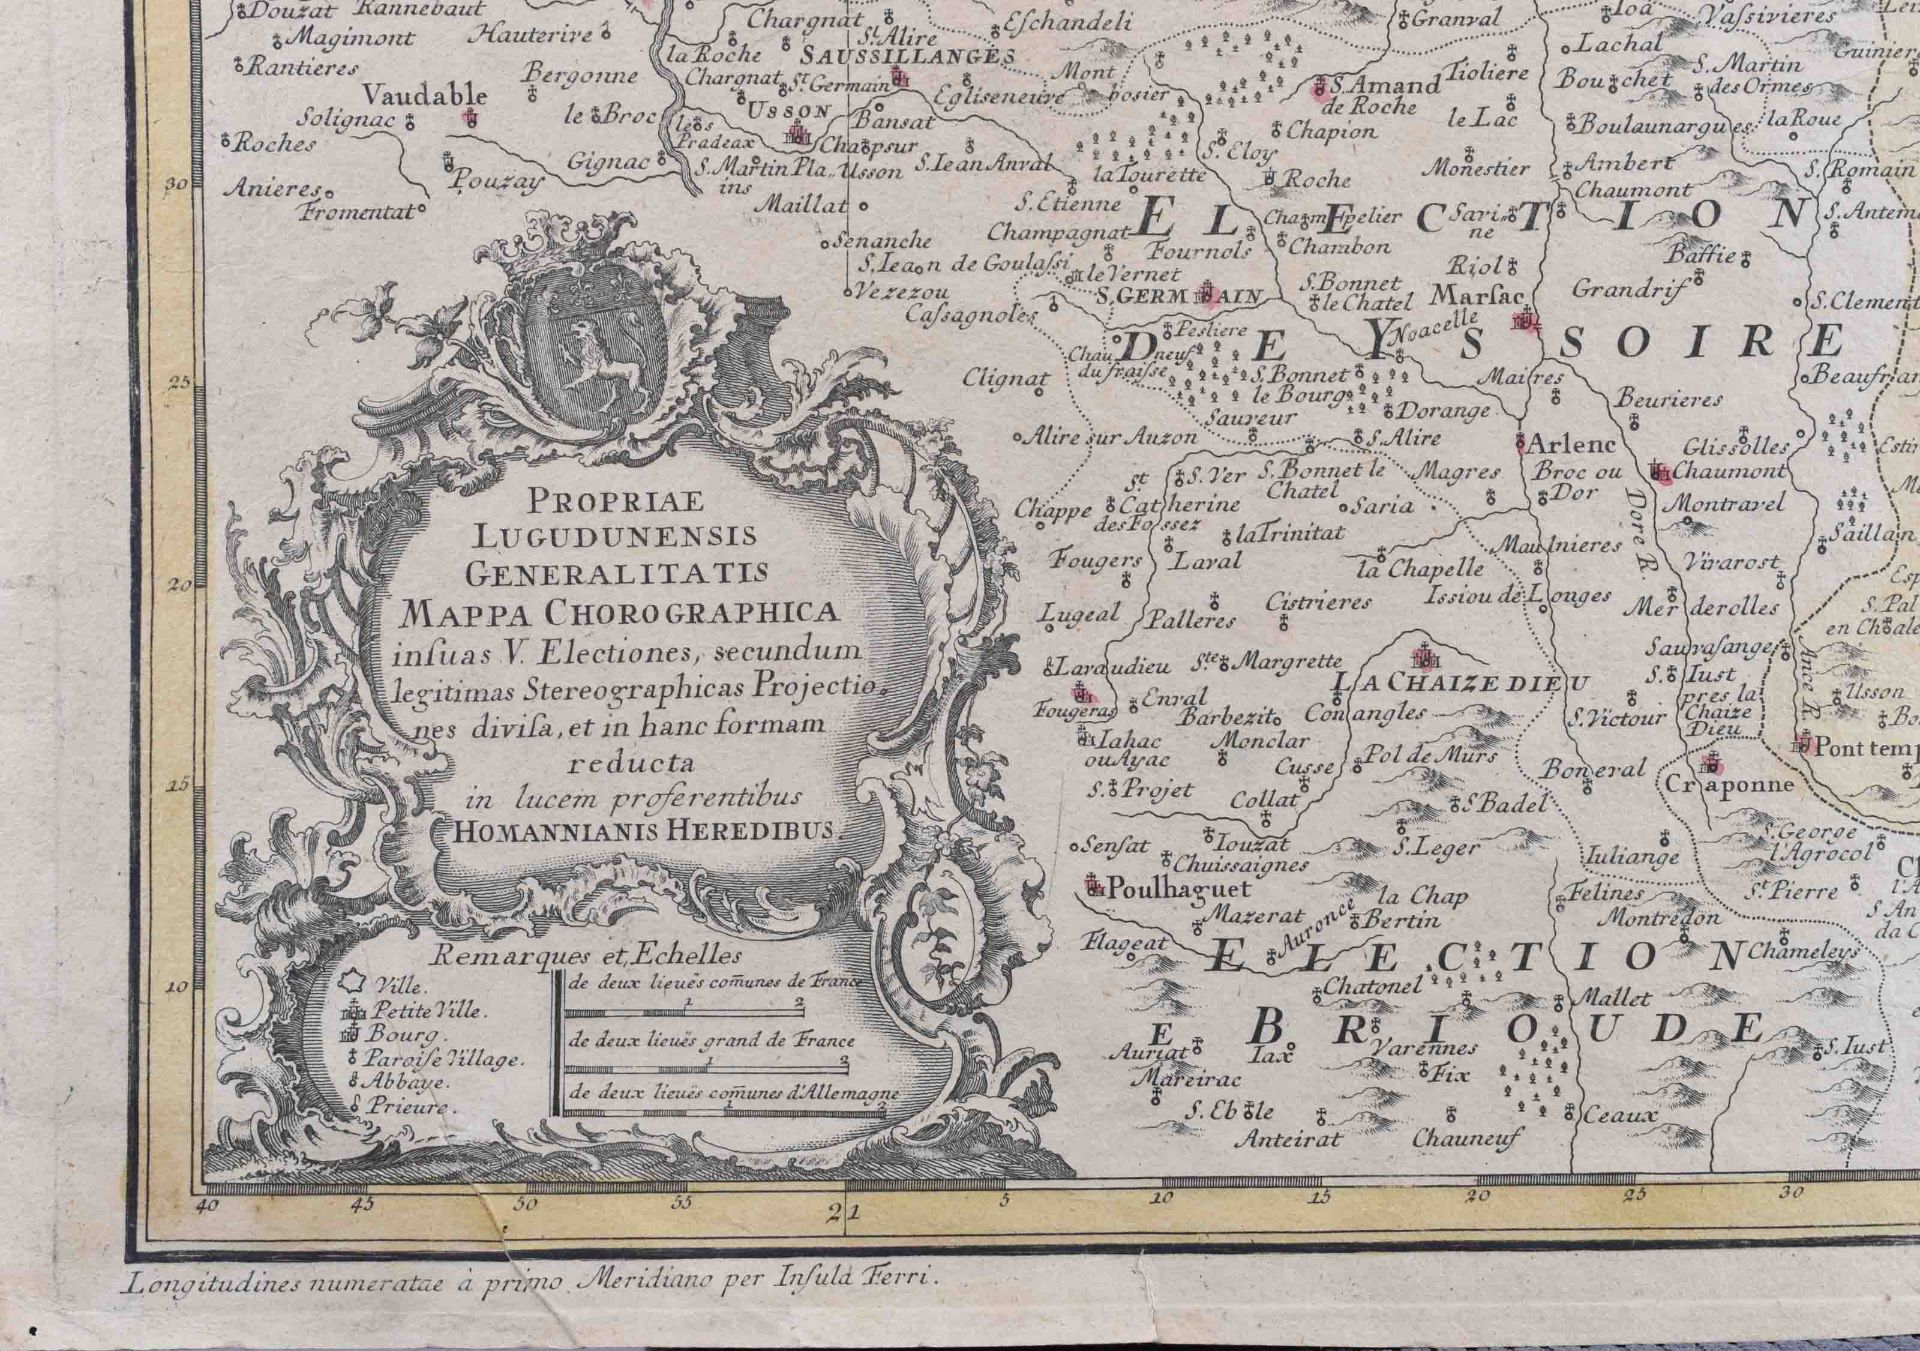 Douzat Rannebaut Chargnat Eschandeli Granval Toa Vassivieres
Magimont Hauterive St. Alire Lachal Guinier
Rantieres Bergonne la Roche SAUSSILLANGES Mont Tioliere Bouschet S. Martin
des Ormes
Vaudable Chargnat St. Germain Egliseneuve bosier S. Amand
de Roche
Solignac le Broc USSON Bansat Chapion le Lac Boulaunargues la Roue
Roches les Pradeax Chapsur S. Eloy
Gignac S. Martin Pla,,
ins
Usson S. Iean Anval la Tourette Monestier Ambert S. Romain
30 Anieres Pouzay Roche Chaumont
Fromentat Maillat S. Etienne ELECTION S. Antem
Champagnat Champelier Sari,,
ne
Senanche Fournols Chambon Baffie
S. Iean de Goulassi le Vernet Riol
Vezezou S. GERMAIN S. Bonnet
le Chatel Marsac Grandrif S. Clement
Cassagnoles Pesliere Noacelle
DE YSSOIRE
Chau neuf
du fraisse
Clignat S. Bonnet
le Bourg Maires Beaufran
25
Sauveur Dorange Beurieres
Alire sur Auzon S. Alire Arlenc Glissolles
St
Catherine
des Fossez
S. Ver S. Bonnet le
Chatel Magres Broc ou
Dor Chaumont
Chappe Saria Montravel
la Trinitat Dore R. Saillan
Fougers Laval Maulnieres Virarost
la Chapelle
20
Lugeal Palleres Cistrieres Issiou de Longes Mer derolles S. Pal
en Chale
Saurasange Ance R.
Laraudieu Ste. Margrette LA CHAIZE DIEU S. Iust
pres la
Chaize
Dieu
Usson
Fougeras Enval Barbezit Conangles S. Victour
Iahac
ou Ayac Monclar Pol de Murs Pont temp
Cusse Boneral Craponne
S. Projet Collat S. Badel
Sensat Iouzat S. Leger S. George
l'Agrocol
Chuissaignes Iuliange
Poulhaguet la Chap Felines St. Pierre
Mazerat Auronce Bertin Montredon
Flageat ELECTION Chameleys
Chatonel Mallet
E BRIOUDE
Auriat Iax Varennes S. Iust
Mareirac Fix
S. Eble Ceaux
Anteirat Chauneuf
PROPRIAE
LUGUDUNENSIS
GENERALITATIS
MAPPA CHOROGRAPHICA
insuas V. Electiones, secundum
legitimas Stereographicas Projectio,,
nes divisa, et in hanc formam
reducta
in lucem proferentibus
HOMANNIANIS HEREDIBUS.
Remarques et Echelles
Ville.
Petite Ville.
Bourg.
Paroise Village.
Abbaye.
Prieure.
de deux lieuës com̃unes de France
1 2
de deux lieuës grand de France
1 2
de deux lieuës com̃unes d'Allemagne
1 2
15
10
40 45 50 55 21 5 10 15 20 25 30
Longitudines numeratae à primo Meridiano per Insula Ferri.